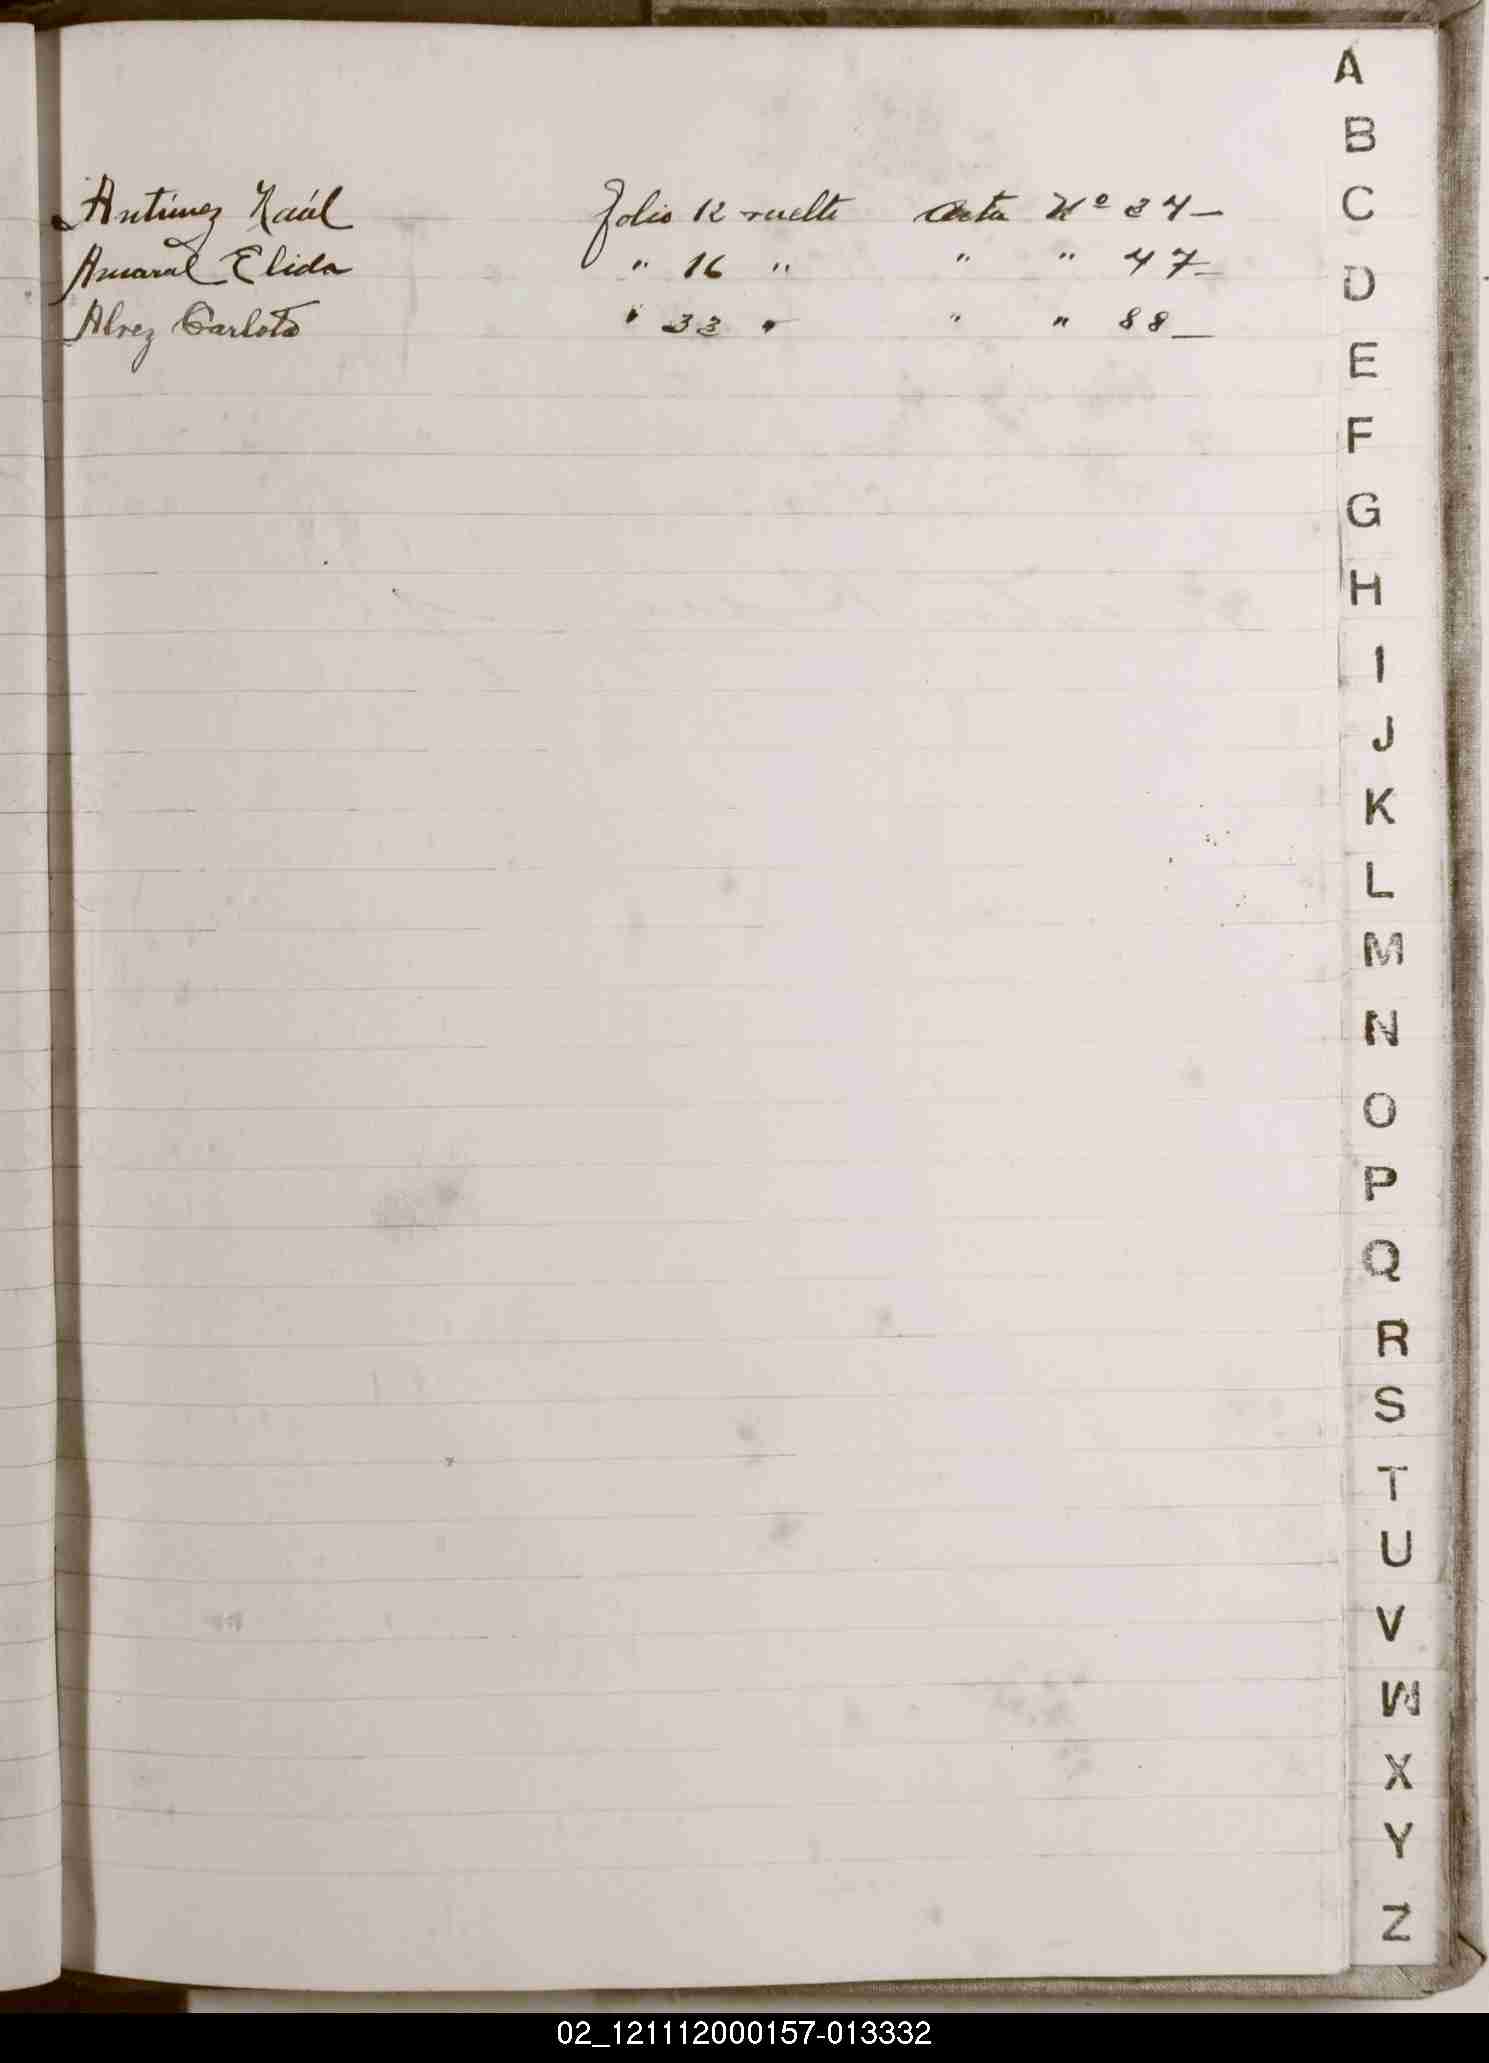 Antúnez Raúl folio 12 vuelto acta Nº 34—
Amaral Elida " 16 " " " 47—
Alvez Carlota " 33 " " " 88—
A
B
C
D
E
F
G
H
I
J
K
L
M
N
O
P
Q
R
S
T
U
V
W
X
Y
Z
02_121112000157-013332